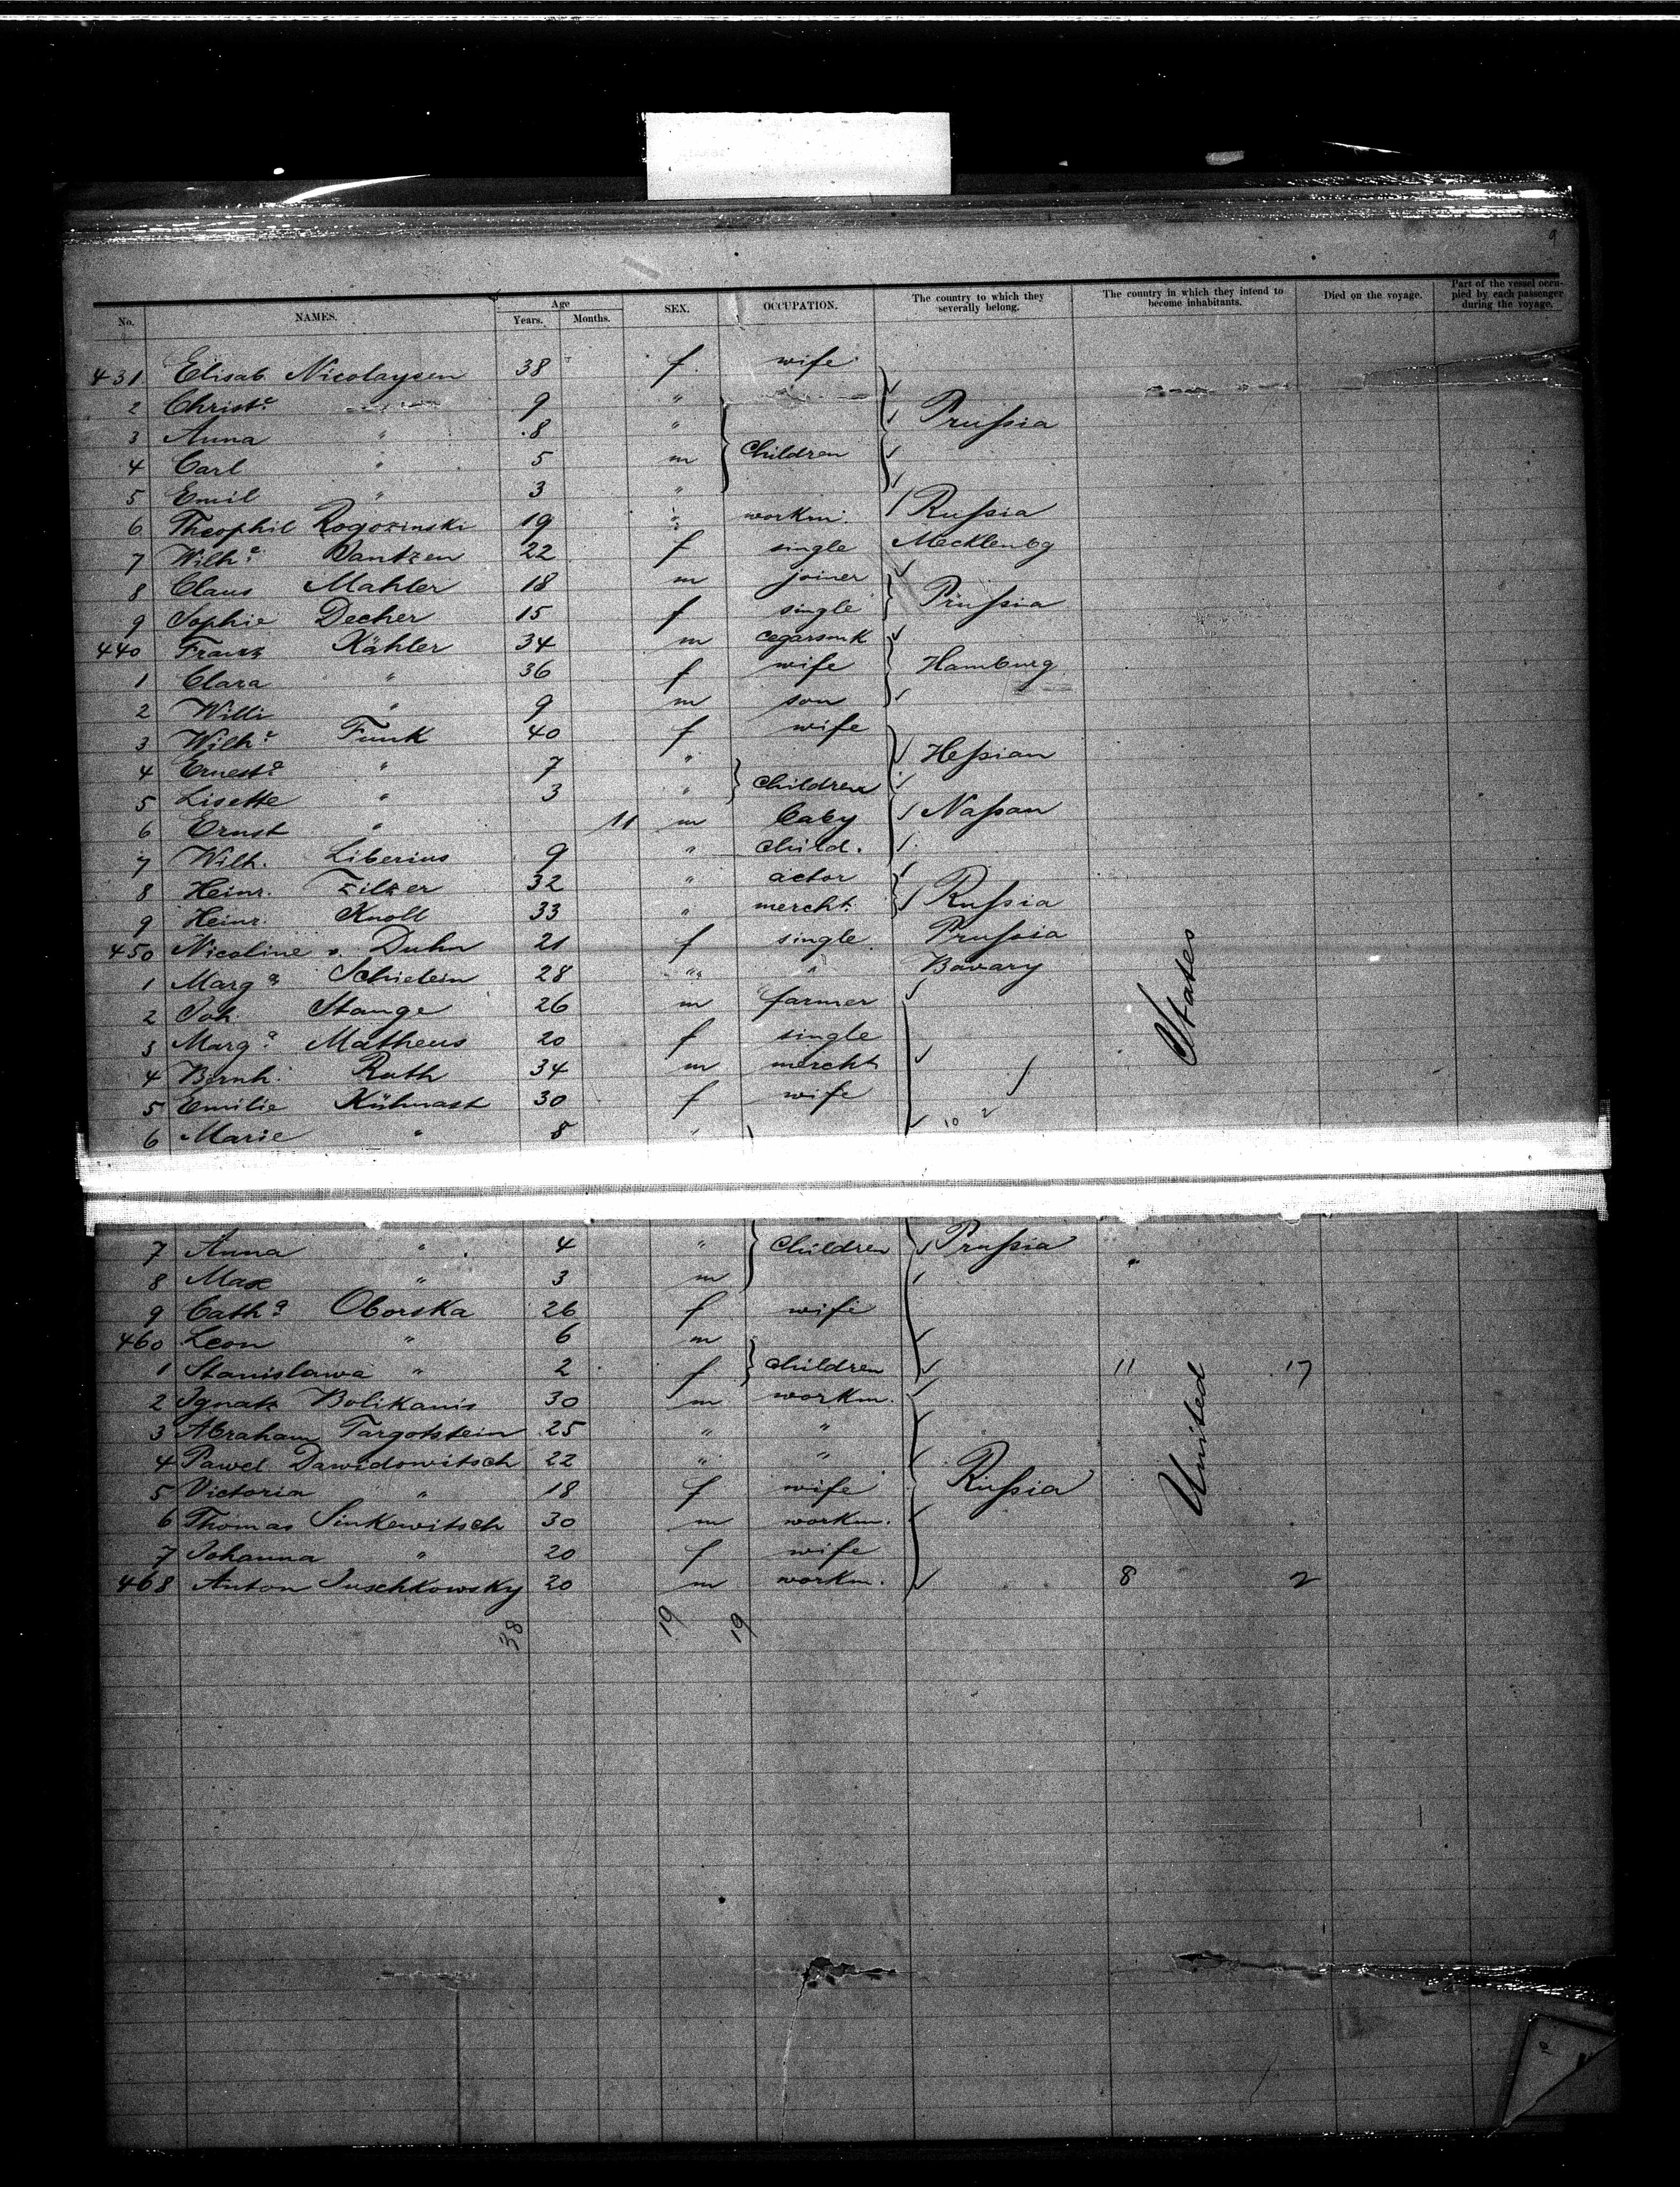 9
No. NAMES. Age Years. Months. SEX. OCCUPATION. The country to which they severally belong. The country in which they intend to become inhabitants. Died on the voyage. Part of the vessel occupied by each passenger during the voyage.
431 Elisab. Nicolaysen 38 f. wife
2 Christe " 9 "
3 Anna " 8 " Prussia
4 Carl " 5 m Children
5 Emil " 3 "
6 Theophil Rogozinski 19 " workm. Russia
7 Wilhe. Jantzen 22 f single Mecklenbg
8 Claus Mahler 18 m joiner
9 Sophie Decher 15 f single Prussia
440 Franz Kähler 34 m cegarsmk
1 Clara " 36 f wife Hamburg
2 Willi " 9 m son
3 Wilhe. Funk 40 f wife
4 Erneste " 7 " Hessian
5 Lisette " 3 " children
6 Ernst " 11 m baby Nassau
7 Wilh. Liberius 9 " child.
8 Heinr. Zilzer 32 " actor
9 Heinr. Knoll 33 " mercht. Russia
450 Nicoline v. Duhn 21 f single Prussia
1 Marga Schielein 28 " " Bavary
2 Joh. Stange 26 m farmer
3 Marga. Matheus 20 f single
4 Bernh. Rath 34 m mercht
5 Emilie Kühnast 30 f wife
6 Marie " 8 " 10 2
7 Anna " 4 " Children Prussia
8 Max " 3 m
9 Catha Oborska 26 f wife
460 Leon " 6 m
1 Stanislawa " 2 f children 11 17
2 Ignatz Bolikanis 30 m workm.
3 Abraham Targotstein 25 " "
4 Pawel Dawidowitsch 22 " "
5 Victoria " 18 f wife Russia
6 Thomas Sinkewitsch 30 m workm.
7 Johanna " 20 f wife
468 Anton Juschkowsky 20 m workm. 8 2
United States
38 19 19